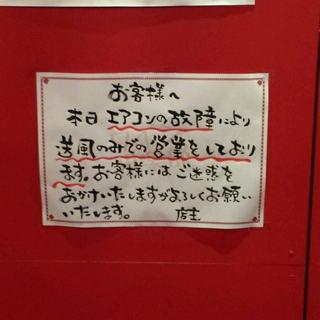 お客様へ
本日エアコンの故障により
送風のみでの営業をしており
ます。お客様にはご迷惑を
おかけいたしますがよろしくお願い
いたします。 店主